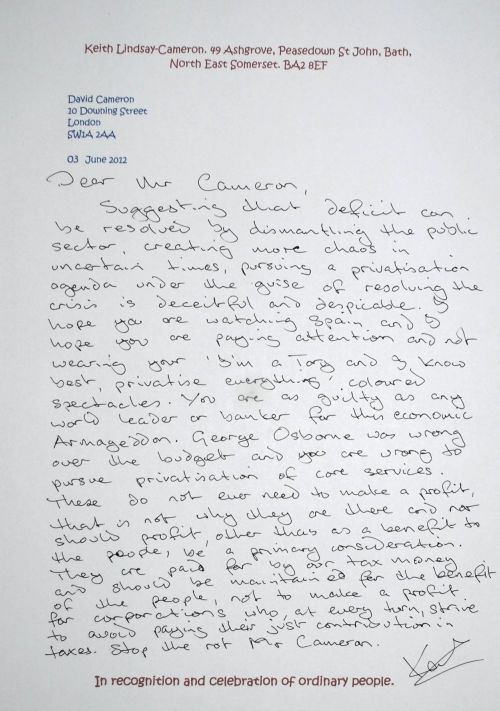 Keith Lindsay-Cameron. 49 Ashgrove, Peasedown St John, Bath,
North East Somerset. BA2 8EF
David Cameron
10 Downing Street
London
SW1A 2AA
03 June 2012
Dear Mr Cameron,
Suggesting that deficit can
be resolved by dismantling the public
sector, creating more chaos in
uncertain times, pursuing a privatisation
agenda under the guise of resolving the
crisis is deceitful and despicable. I
hope you are watching Spain and I
hope you are paying attention and not
wearing your 'I'm a Tory and I know
best, privatise everything' coloured
spectacles. You are as guilty as any
world leader or banker for this economic
Armageddon. George Osborne was wrong
over the budget and you are wrong to
pursue privatisation of core services.
These do not ever need to make a profit,
that is not why they are there and nor
should profit, other than as a benefit to
the people, be a primary consideration.
They are paid for by our tax money
and should be maintained for the benefit
of the people, not to make a profit
for corporations who, at every turn, strive
to avoid paying their just contribution in
taxes. Stop the rot Mr Cameron.
In recognition and celebration of ordinary people.